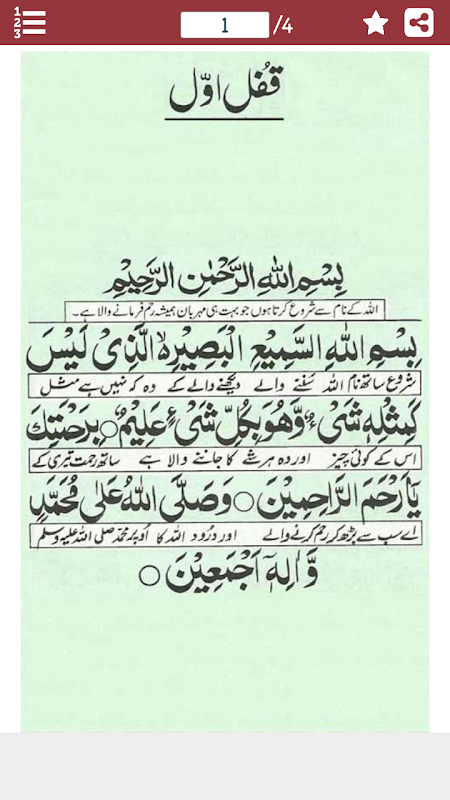 1 2 3
1 /4
قُفْل اوّل
بِسْمِ اللهِ الرَّحْمٰنِ الرَّحِيْمِ
اللہ کے نام سے شروع کرتا ہوں جو بہت ہی مہربان ہمیشہ رحم فرمانے والا ہے۔
بِسْمِ اللهِ السَّمِيْعِ الْبَصِيْرِ الَّذِىْ لَيْسَ
شروع ساتھ نام اللہ سُننے والے دیکھنے والے کے وہ کہ نہیں ہے مثل
كَمِثْلِهٖ شَىْءٌ وَّهُوَ بِكُلِّ شَىْءٍ عَلِيْمٌ ○ بِرَحْمَتِكَ
اس کے کوئی چیز اور وہ ہر شے کا جاننے والا ہے ساتھ رحمت تیری کے
يَآ اَرْحَمَ الرَّاحِمِيْنَ ○ وَصَلَّى اللهُ عَلٰى مُحَمَّدٍ
اے سب سے بڑھ کر رحم کرنے والے اور درُود اللہ کا اُوپر محمّد صلی اللہ علیہ وسلم
وَّاٰلِهٖٓ اَجْمَعِيْنَ ○